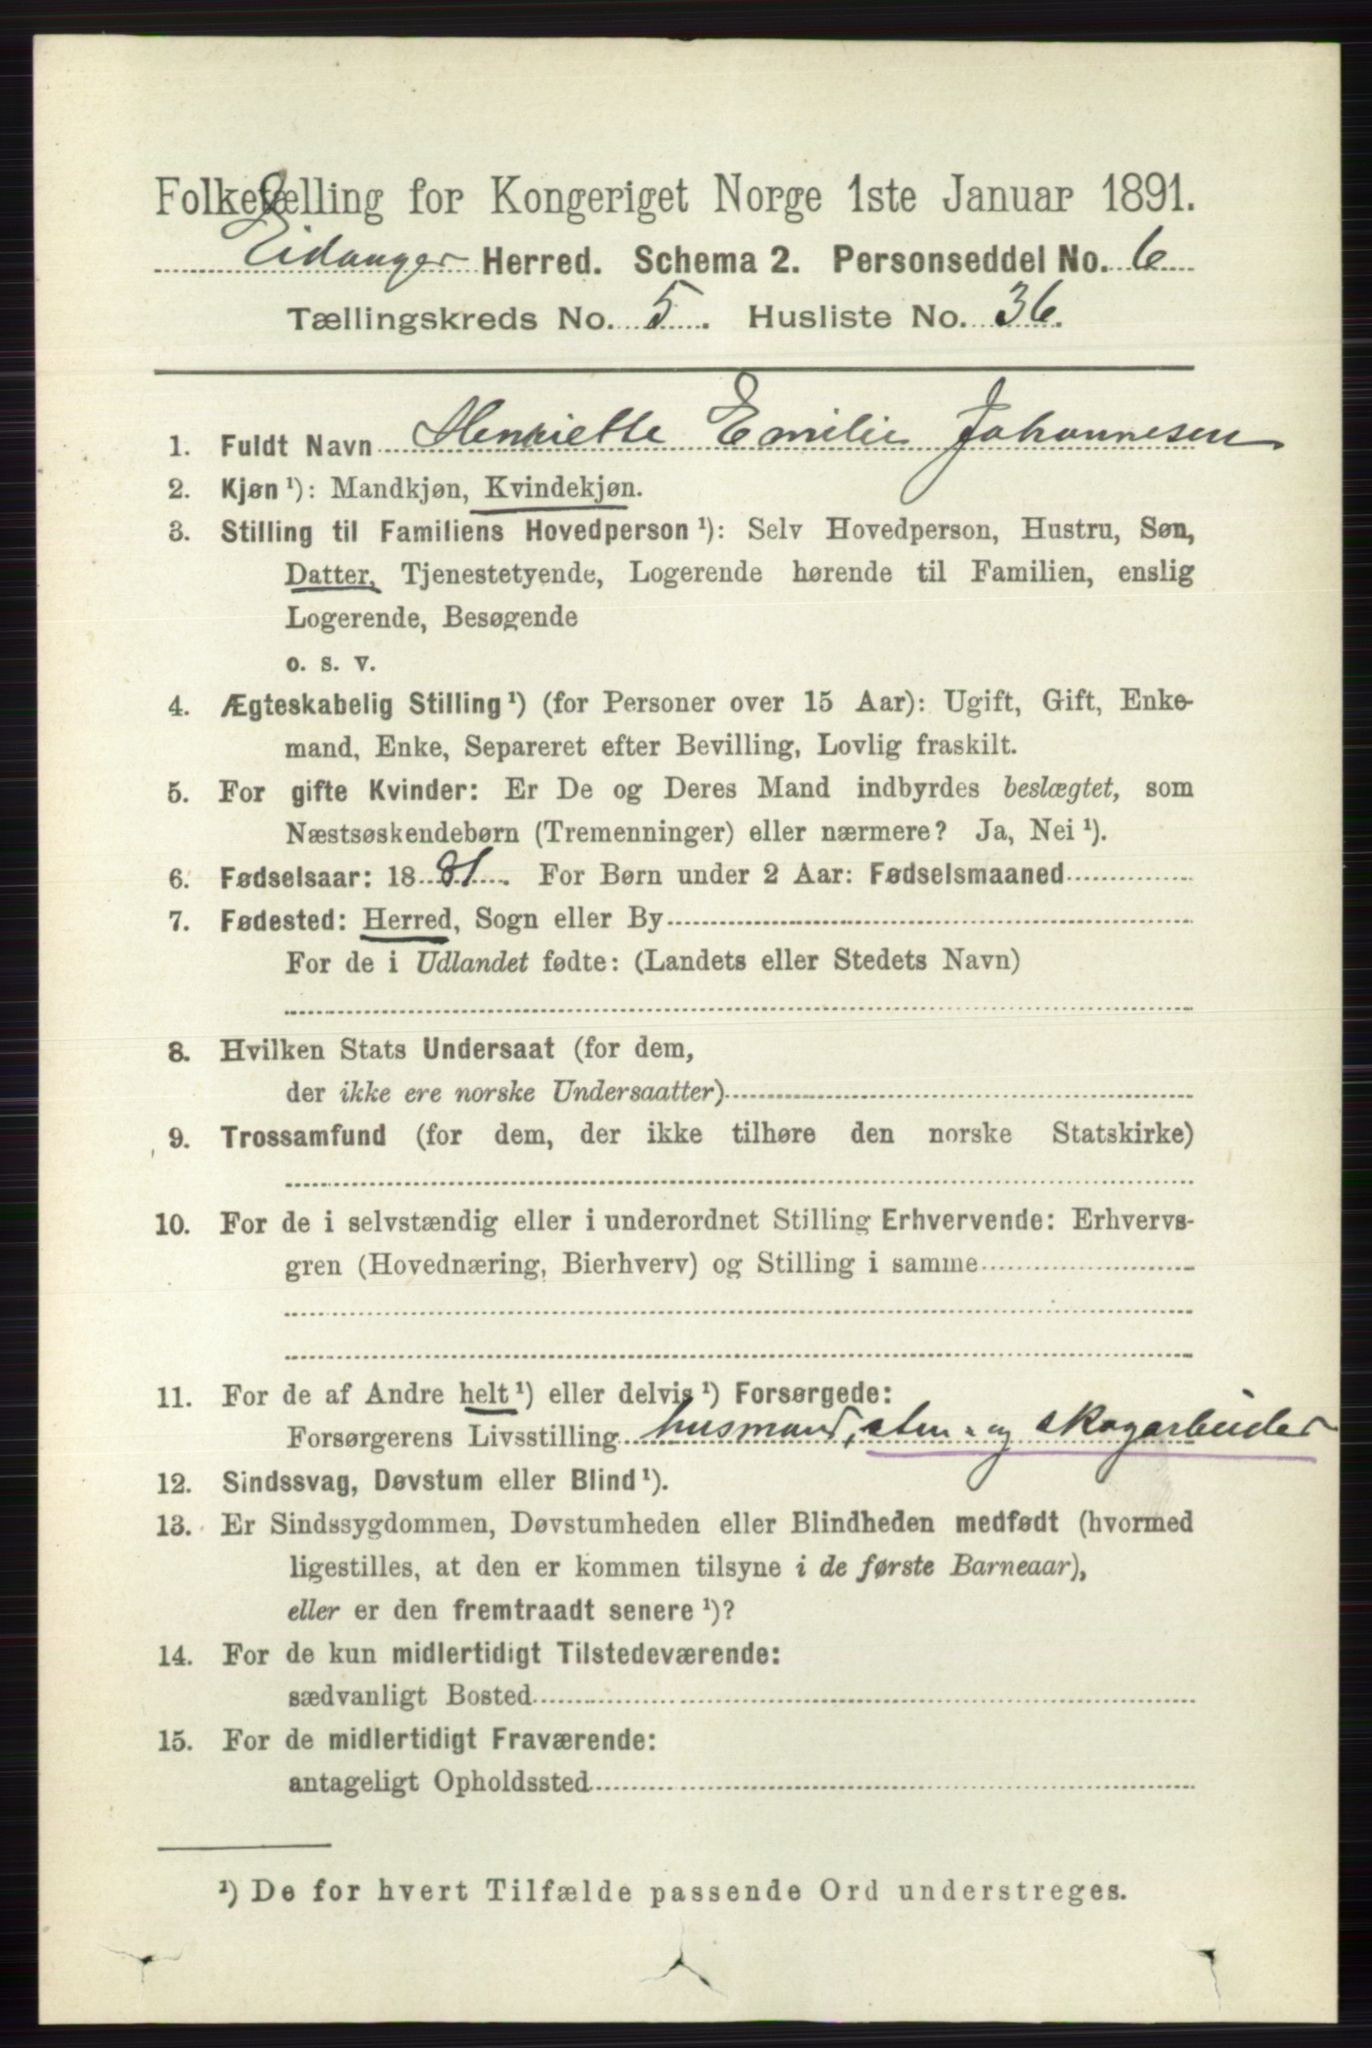 Folketælling for Kongeriget Norge 1ste Januar 1891.
Eidanger Herred. Schema 2. Personseddel No. 6
Tællingskreds No. 5. Husliste No. 36.
1. Fuldt Navn Henriette Emilie Johannesen
2. Kjøn ¹): Mandkjøn, Kvindekjøn.
3. Stilling til Familiens Hovedperson ¹): Selv Hovedperson, Hustru, Søn,
Datter, Tjenestetyende, Logerende hørende til Familien, enslig
Logerende, Besøgende
o. s. v.
4. Ægteskabelig Stilling ¹) (for Personer over 15 Aar): Ugift, Gift, Enke-
mand, Enke, Separeret efter Bevilling, Lovlig fraskilt.
5. For gifte Kvinder: Er De og Deres Mand indbyrdes beslægtet, som
Næstsøskendebørn (Tremenninger) eller nærmere? Ja, Nei ¹).
6. Fødselsaar: 1881. For Børn under 2 Aar: Fødselsmaaned
7. Fødested: Herred, Sogn eller By
For de i Udlandet fødte: (Landets eller Stedets Navn)
8. Hvilken Stats Undersaat (for dem,
der ikke ere norske Undersaatter)
9. Trossamfund (for dem, der ikke tilhøre den norske Statskirke)
10. For de i selvstændig eller i underordnet Stilling Erhvervende: Erhvervs-
gren (Hovednæring, Bierhverv) og Stilling i samme
11. For de af Andre helt ¹) eller delvis ¹) Forsørgede:
Forsørgerens Livsstilling husmand, sten- og skogarbeider
12. Sindssvag, Døvstum eller Blind ¹).
13. Er Sindssygdommen, Døvstumheden eller Blindheden medfødt (hvormed
ligestilles, at den er kommen tilsyne i de første Barneaar),
eller er den fremtraadt senere ¹)?
14. For de kun midlertidigt Tilstedeværende:
sædvanligt Bosted
15. For de midlertidigt Fraværende:
antageligt Opholdssted
¹) De for hvert Tilfælde passende Ord understreges.